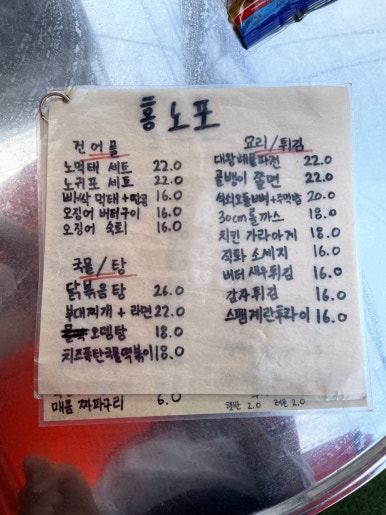 홍노포
건어물
노먹태 세트 22.0
노귀포 세트 22.0
바삭 먹태+땅콩 16.0
오징어 버터구이 16.0
오징어 숙회 16.0
국물/탕
닭볶음탕 26.0
부대찌개+라면 22.0
오뎅탕 18.0
치즈폭탄국물떡볶이 18.0
요리/튀김
대왕해물파전 22.0
골뱅이 쫄면 22.0
20.0
30cm돌까스 18.0
치킨 가라아게 18.0
직화 소세지 16.0
버터새우튀김 16.0
감자튀김 16.0
스팸계란후라이 16.0
매콤 짜파구리 6.0
햇반 2.0
라면 2.0